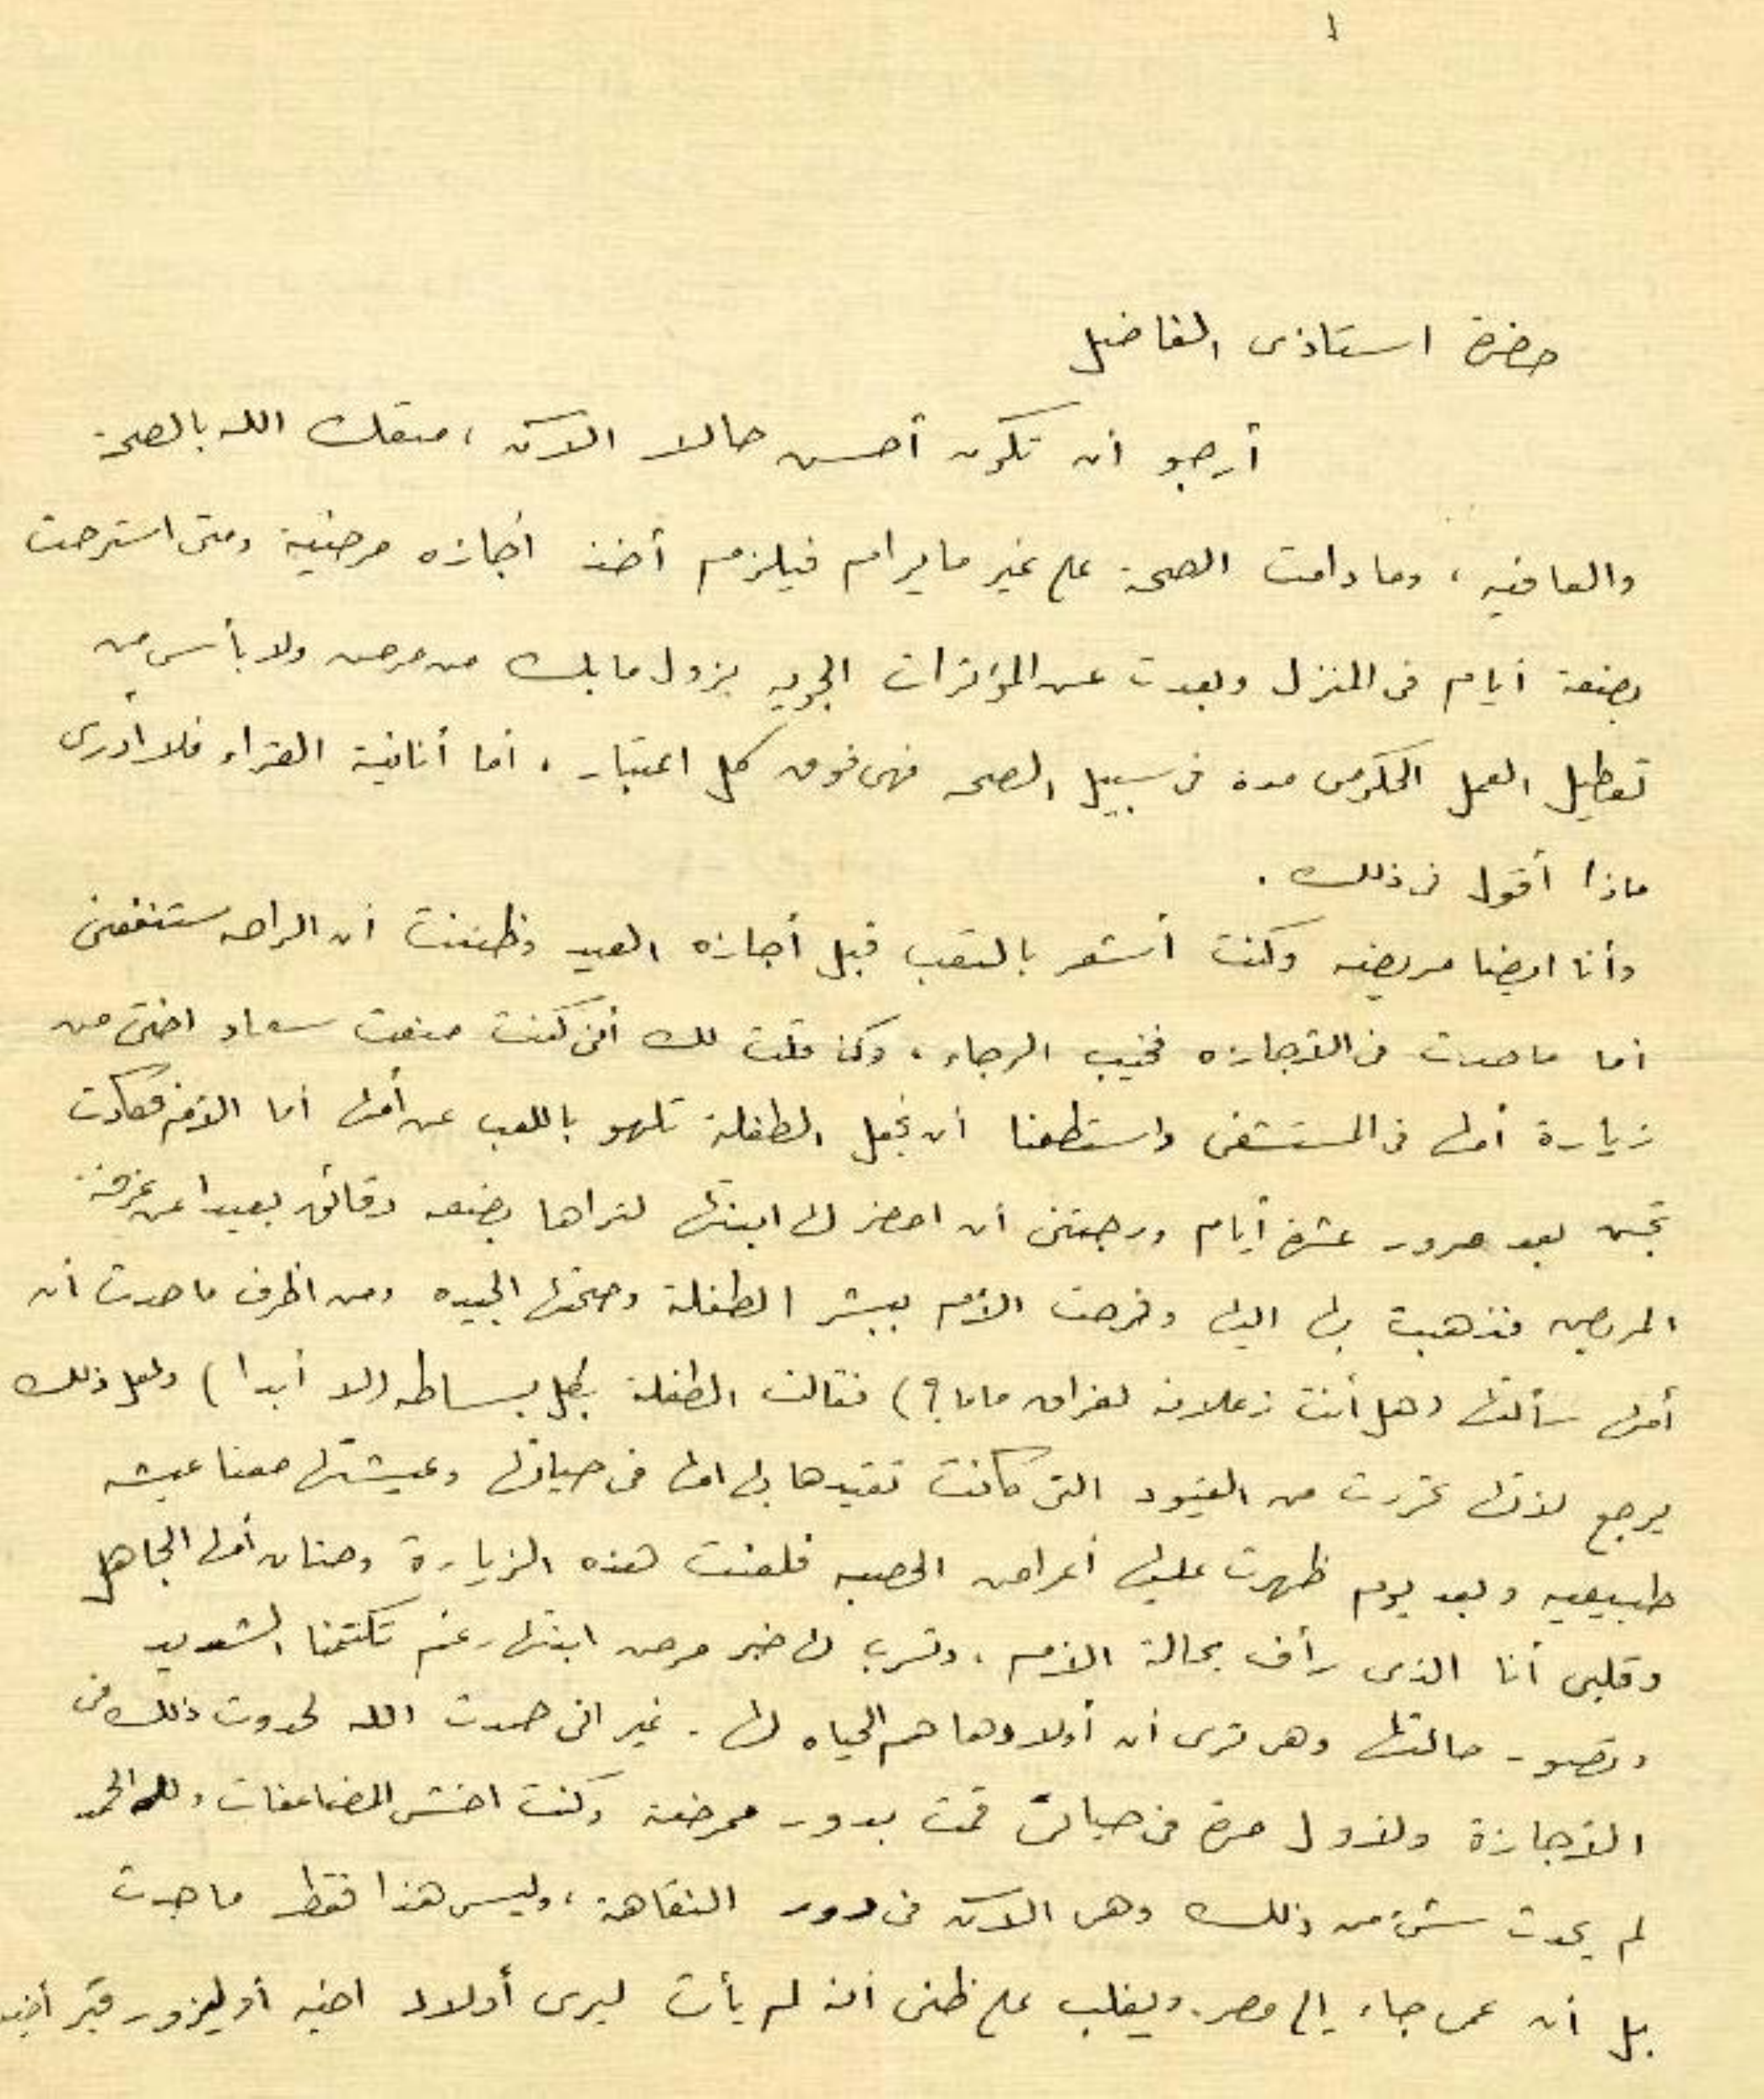 ١
حضرة استاذى الفاضل
أرجو أن تكون أحسن حالا الآن ، متعك الله بالصحة
والعافيه ، وما دامت الصحة على غير ما يرام فيلزم أخذ اجازه مرضية ومتى استرحت
بضعة أيام فى المنزل وبعدت عن المؤثرات الجويه يزول ما بك من مرض ولا بأس من
تعطيل العمل الحكومى مدة فى سبيل الصحه فهى فوق كل اعتبار ، أما أنانية القراء فلا أدرى
ماذا أقول فى ذلك .
وأنا ايضا مريضه وكنت أشعر بالتعب قبل أجازه العيد وظننت أن الراحه ستنفعنى
أما ما حدث فى الأجازه فخيب الرجاء ، وكما قلت لك أننى كنت منعت سعاد اختى من
زيارة أمها فى المستشفى واستطعنا أن نجعل الطفلة تلهو باللعب عن أمها أما الأم فكادت
تجن بعد مرور عشرة أيام ورجتنى أن احضر لها ابنتها لتراها بضعه دقائق بعيدا عن غرفة
المريض فذهبت بها اليها وفرحت الأم ببشر الطفلة وصحتها الجيده ومن اظرف ما حدث أن
أمها سألتها (هل أنت زعلانه لفراق ماما ؟) فقالت الطفلة بكل بساطه (لا أبدا) ولعل ذلك
يرجع لأنها تحررت من القيود التى كانت تقيدها بها امها فى حياتها وعيشتها معنا عيشه
طبيعيه وبعد يوم ظهرت عليها أعراض الحصبه فلعنت هذه الزيارة وحنان أمها الجاهل
وقلبى أنا الذى رأف بحالة الأم ، وتسرب لها خبر مرض ابنتها رغم تكتمنا الشديد
وتصور حالتها وهى ترى أن أولادها هم الحياه لها . غير انى حمدت الله لحدوث ذلك فى
الأجازة ولأول مرة فى حياتى قمت بدور ممرضة وكنت اخشى المضاعفات ولله الحمد
لم يحدث شئ من ذلك وهى الآن فى دور النقاهة ، وليس هذا فقط ما حدث
بل أن عمى جاء الى مصر ويغلب على ظنى أنه لم يأت ليرى أولاد اخيه أو ليزور قبر أخيه